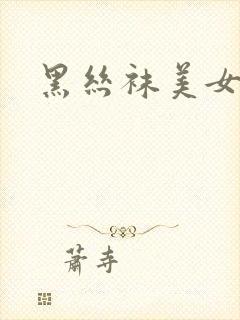 黑丝袜美女
萧寺